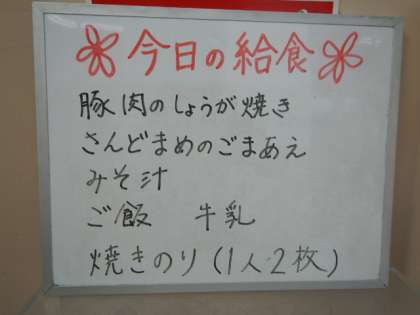 今日の給食
豚肉のしょうが焼き
さんどまめのごまあえ
みそ汁
ご飯 牛乳
焼きのり(1人2枚)